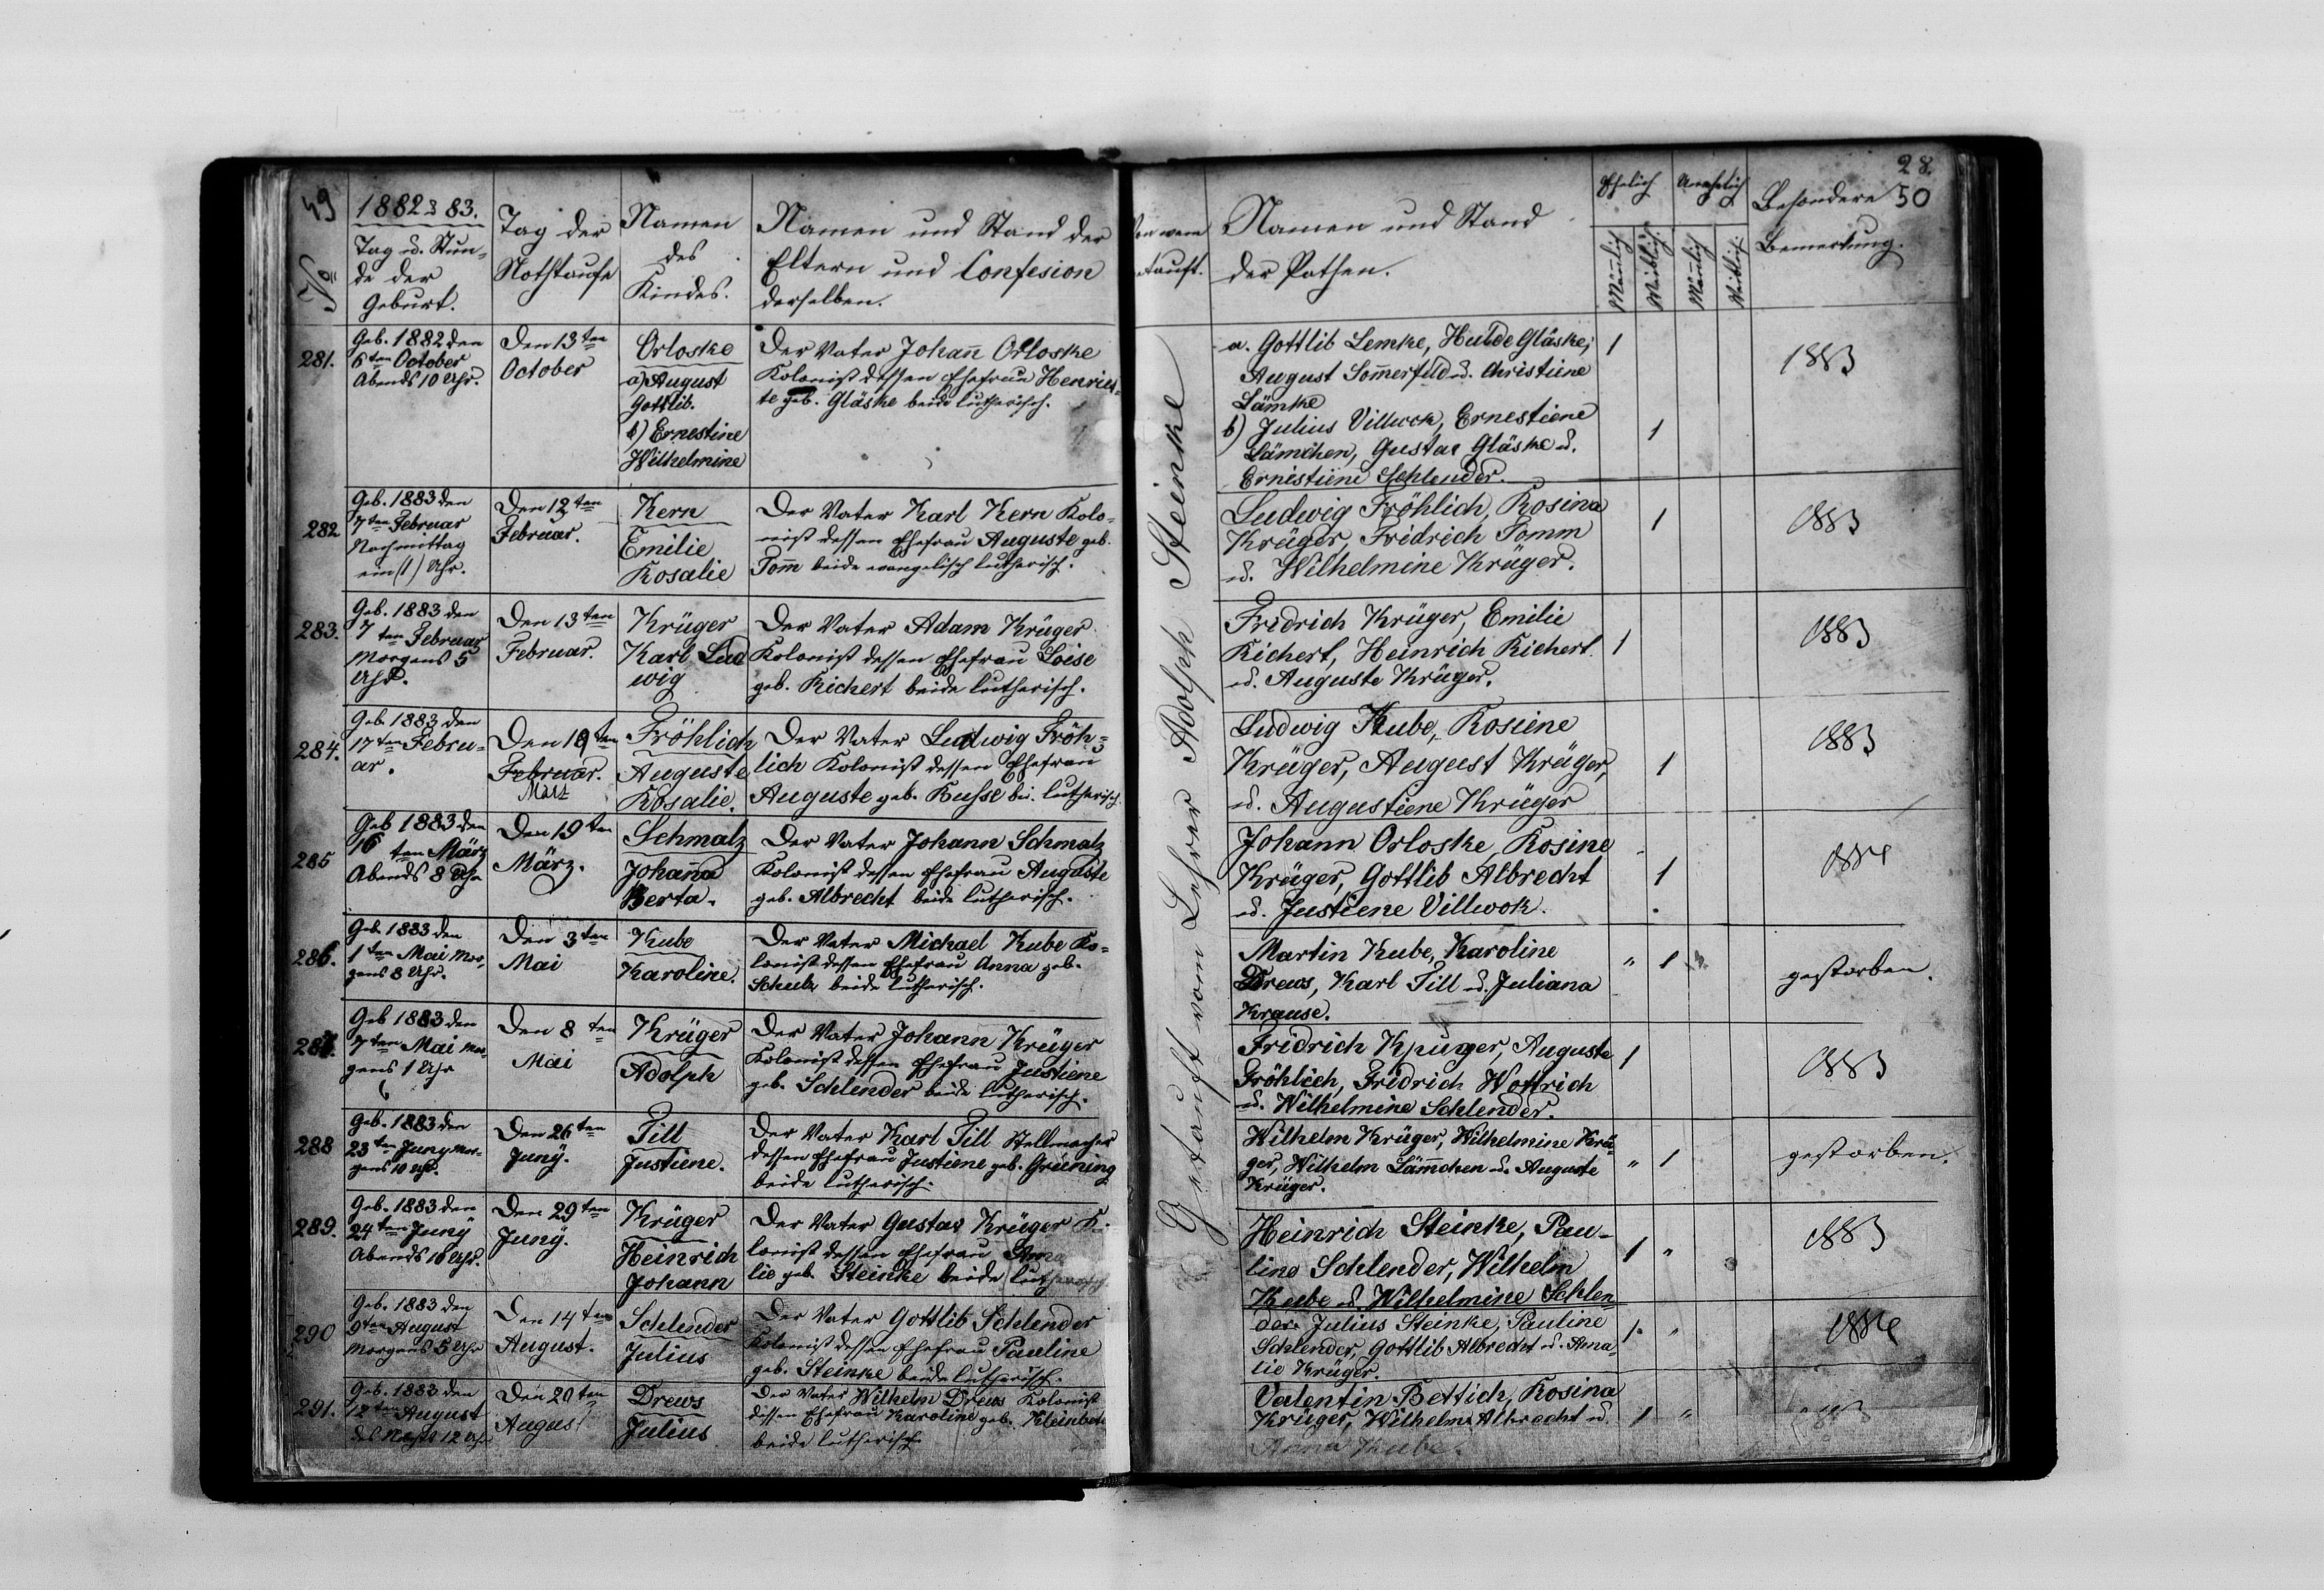 49
1882 & 83.
No
Tag u. Stun-
de der
Geburt.
Tag der
Nothtaufe
Namen
des
Kindes.
Namen und Stand der
Eltern und Confesion
derselben.
281.
Geb. 1882 den
6ten October
Abends 10 Uhr.
Den 13ten
October
Orloske
a) August
Gottlib.
b) Ernestine
Wilhelmine
Der Vater Johañ Orloske
Kolonist dessen Ehefrau Henriet-
te geb. Gläske beide lutherisch.
282
Geb. 1883 den
7ten Februar
Nachmittag
ein (1) Uhr.
Den 12ten
Februar.
Kern
Emilie
Rosalie
Der Vater Karl Kern Kolo-
nist dessen Ehefrau Auguste geb.
Tom̃ beide evangelisch lutherisch.
283.
Geb. 1883 den
7ten Februar
Morgens 5
Uhr.
Den 13ten
Februar.
Krüger
Karl Lud
wig
Der Vater Adam Krüger
Kolonist dessen Ehefrau Loise
geb. Richert beide lutherisch.
284.
Geb. 1883 den
17ten Febru-
ar.
Den 19ten
Februar.
März
Fröhlich
Auguste
Rosalie.
Der Vater Ludwig Fröh-
lich Kolonist dessen Ehefrau
Auguste geb. Busse bei. lutherisch.
285
Geb 1883 den
16ten März
Abends 8 Uhr
Den 19ten
März.
Schmalz
Johaña
Berta.
Der Vater Johann Schmalz
Kolonist dessen Ehefrau Auguste
geb. Albrecht beide lutherisch.
286.
Geb. 1883 den
1ten Mai Mor-
gens 8 Uhr.
Den 3ten
Mai
Kube
Karoline.
Der Vater Michael Kube Ko-
lonist dessen Ehefrau Anna geb.
Schulz beide lutherisch.
287.
Geb 1883 den
7ten Mai Mor-
gens 1 Uhr
Den 8ten
Mai
Krüger
Adolph
Der Vater Johann Krüger
Kolonist dessen Ehefrau Justiene
geb. Schlender beide lutherisch.
288
Geb. 1883 den
23ten Juny Mor-
gens 10 Uhr.
Den 26ten
Juny.
Till
Justiene.
Der Vater Karl Till Stellmacher
dessen Ehefrau Justiene geb. Grüning
beide lutherisch.
289.
Geb. 1883 den
24ten Juny
Abends 10 Uhr.
Den 29ten
Juny.
Krüger
Heinrich
Johann
Der Vater Gustav Krüger K.
lonist dessen Ehefrau Ama
lie geb. Steinke beide lutherisch.
290
Geb. 1883 den
9ten August
Morgens 5 Uhr
Den 14ten
August.
Schlender
Julius
Der Vater Gottlib Schlender
Kolonist dessen Ehefrau Pauline
geb. Steinke beide lutherisch.
291.
Geb. 1883 den
12ten August
des Nachts 12 Uhr
Den 20ten
August
Drews
Julius
Der Vater Wilhelm Drews Kolonist
dessen Ehefrau Karoline geb.
beide lutherisch.
28.
50
Von wem
tauft.
Namen und Stand
der Pathen.
Ehelich
Unehelich
Mäñlich
Weiblich.
Mäñlich
Weiblich.
Besondere
Bemerkung.
Getauft vom Lehrer Adolph Steinke
a. Gottlib Lemke, Hulde Gläske,
August Som̃erfeld u. Christiene
Lämke
1
1883
b) Julius Villwok, Ernestiene
Lämchen, Gustav Gläske u.
Ernestiene Schlender.
1
Ludwig Fröhlich, Rosina
Krüger, Fridrich Tomm
u. Wilhelmine Krüger.
1
1883
Fridrich Krüger, Emilie
Richert, Heinrich Richert
u. Auguste Krüger.
1
1883
Ludwig Kube, Rosiene
Krüger, August Krüger,
u. Augustiene Krüger
1
1883
Johann Orloske, Rosine
Krüger, Gottlib Albrecht
u. Justiene Villwok.
1
1884
Martin Kube, Karoline
Drews, Karl Till u. Juliana
Krause.
" 1
gestorben.
Fridrich Krüger, Auguste
Fröhlich, Fridrich Wottrich
u. Wilhelmine Schlender.
1
1883
Wilhelm Krüger, Wilhelmine Krü-
ger, Wilhelm Läm̃chen u. Auguste
Krüger.
" 1
gestorben.
Heinrich Steinke, Pau-
line Schlender, Wilhelm
Kube u. Wilhelmine Schlen-
der.
1 "
1883
Julius Steinke, Pauline
Schlender, Gottlib Albrecht u. Ama-
lie Krüger.
1. "
1884
Valentin Bettich, Rosina
Krüger, Wilhelm Albrecht u.
Anna Kube.
1 "